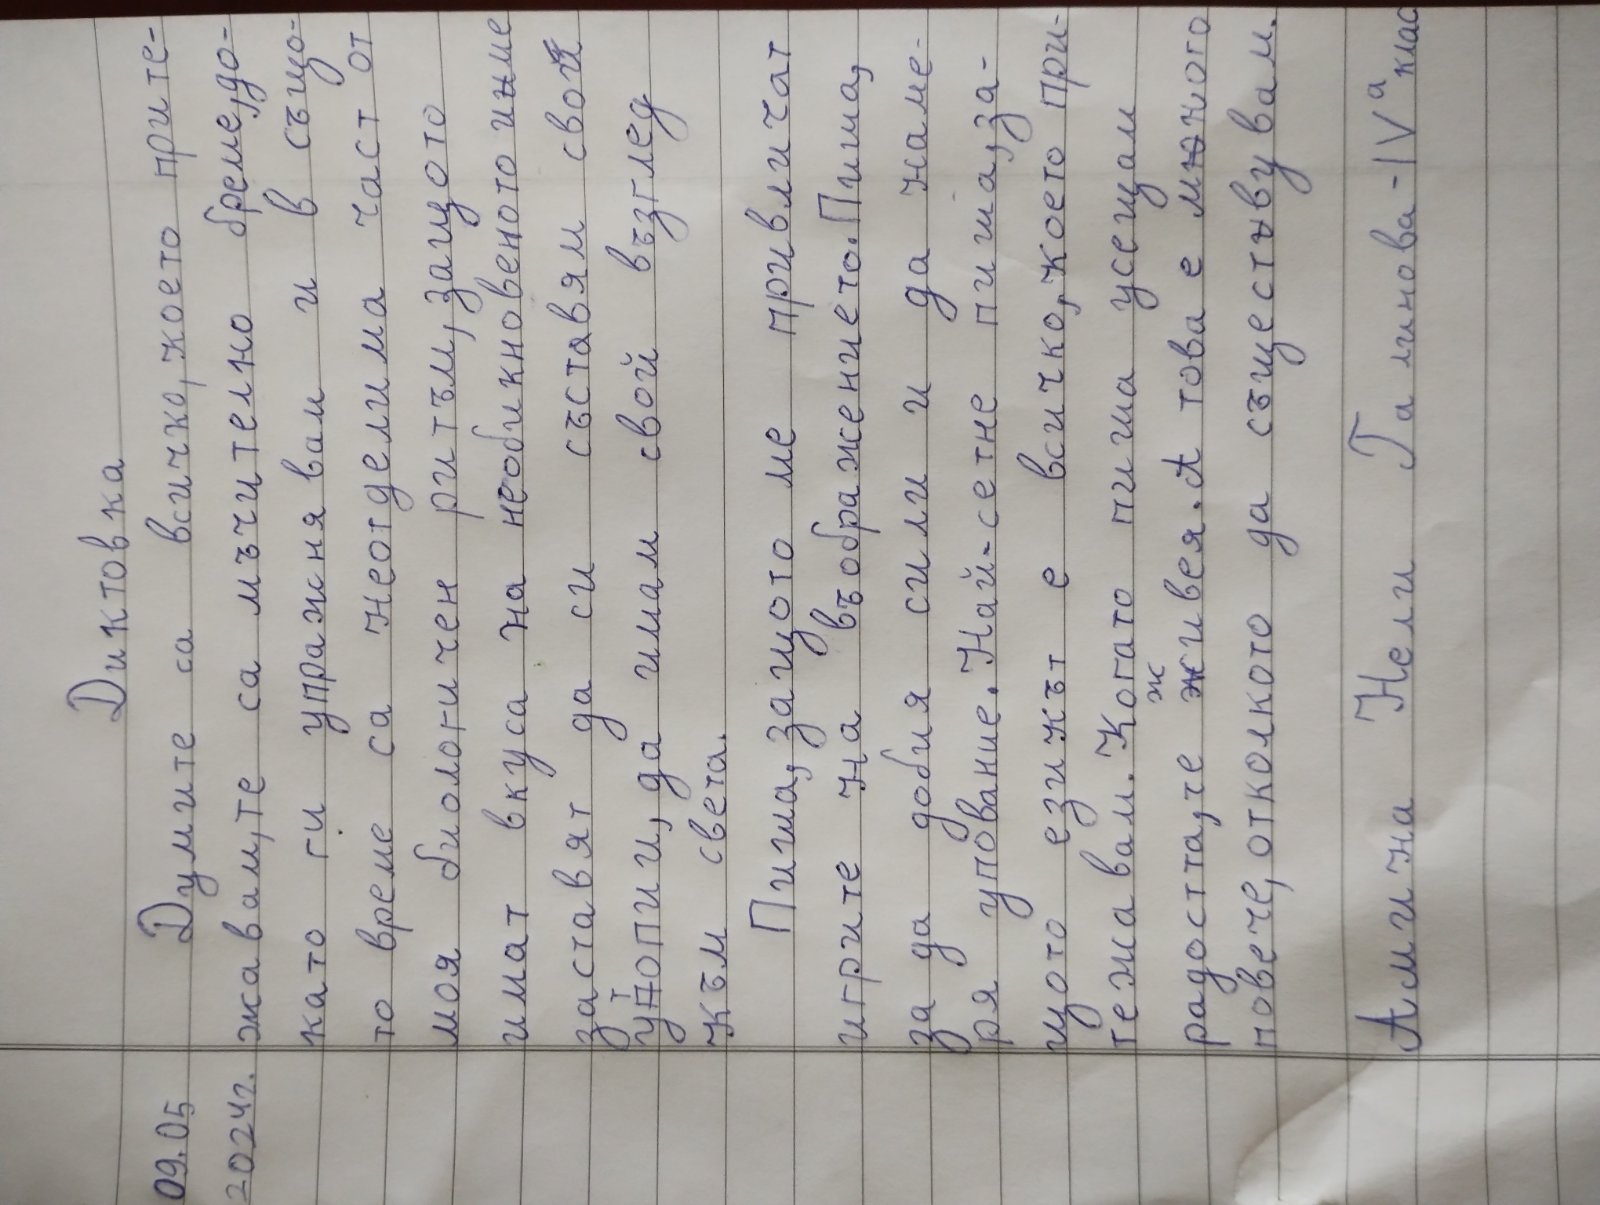 Диктовка
09.05
2024г.
Думите са всичко, което прите-
жавам, те са мъчително бреме, до-
като ги упражнявам и в също-
то време са неотделима част от
моя биологичен ритъм, защото
имат вкуса на необикновеното и ме
заставят да си съставям свои
утопии, да имам свой възглед
към света.
Пиша, защото ме привличат
игрите на въображението. Пиша,
за да добия сили и да наме-
ря упование. Най-сетне пиша, за-
щото езикът е всичко, което при-
тежавам. Когато пиша усещам
радостта, че живея. А това е много
повече, отколкото да съществувам.
Амигна Нели Галинова - IVа клас